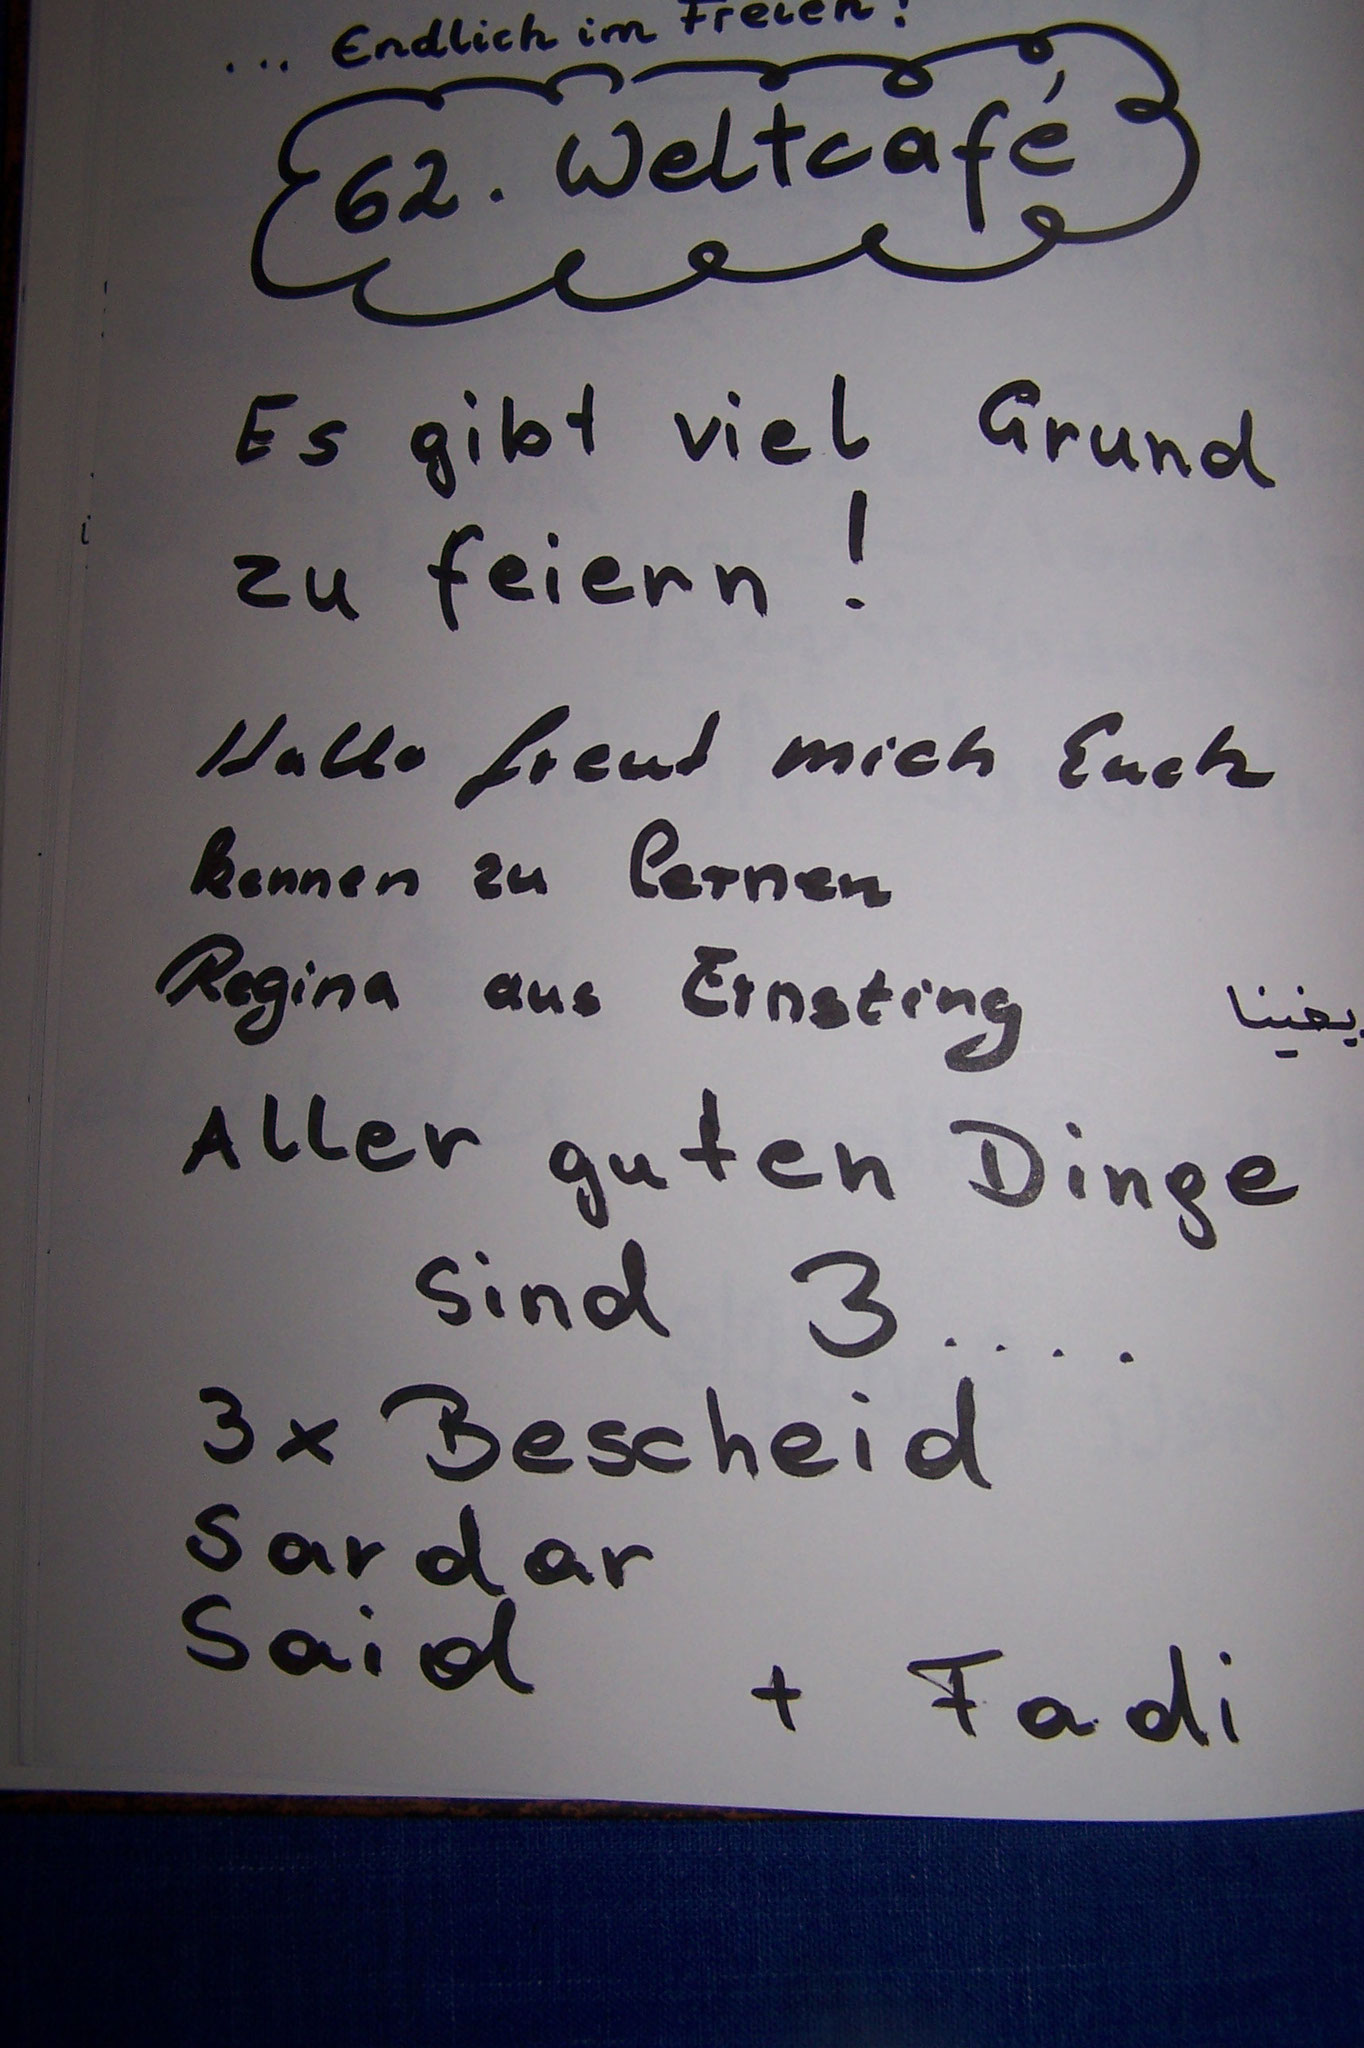 ... Endlich im Freien!
62. Weltcafé
Es gibt viel Grund
zu feiern!
Hallo freut mich Euch
kennen zu lernen
Regina aus Ernsting
Aller guten Dinge
sind 3....
3x Bescheid
Sardar
Said
+ Fadi